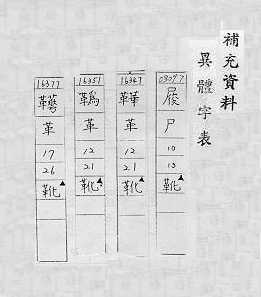 補充資料
異體字表
03097
尸
10
13
靴▲
16347
鞾
革
12
21
靴▲
16351
革
12
21
靴▲
16377
革
17
26
靴▲